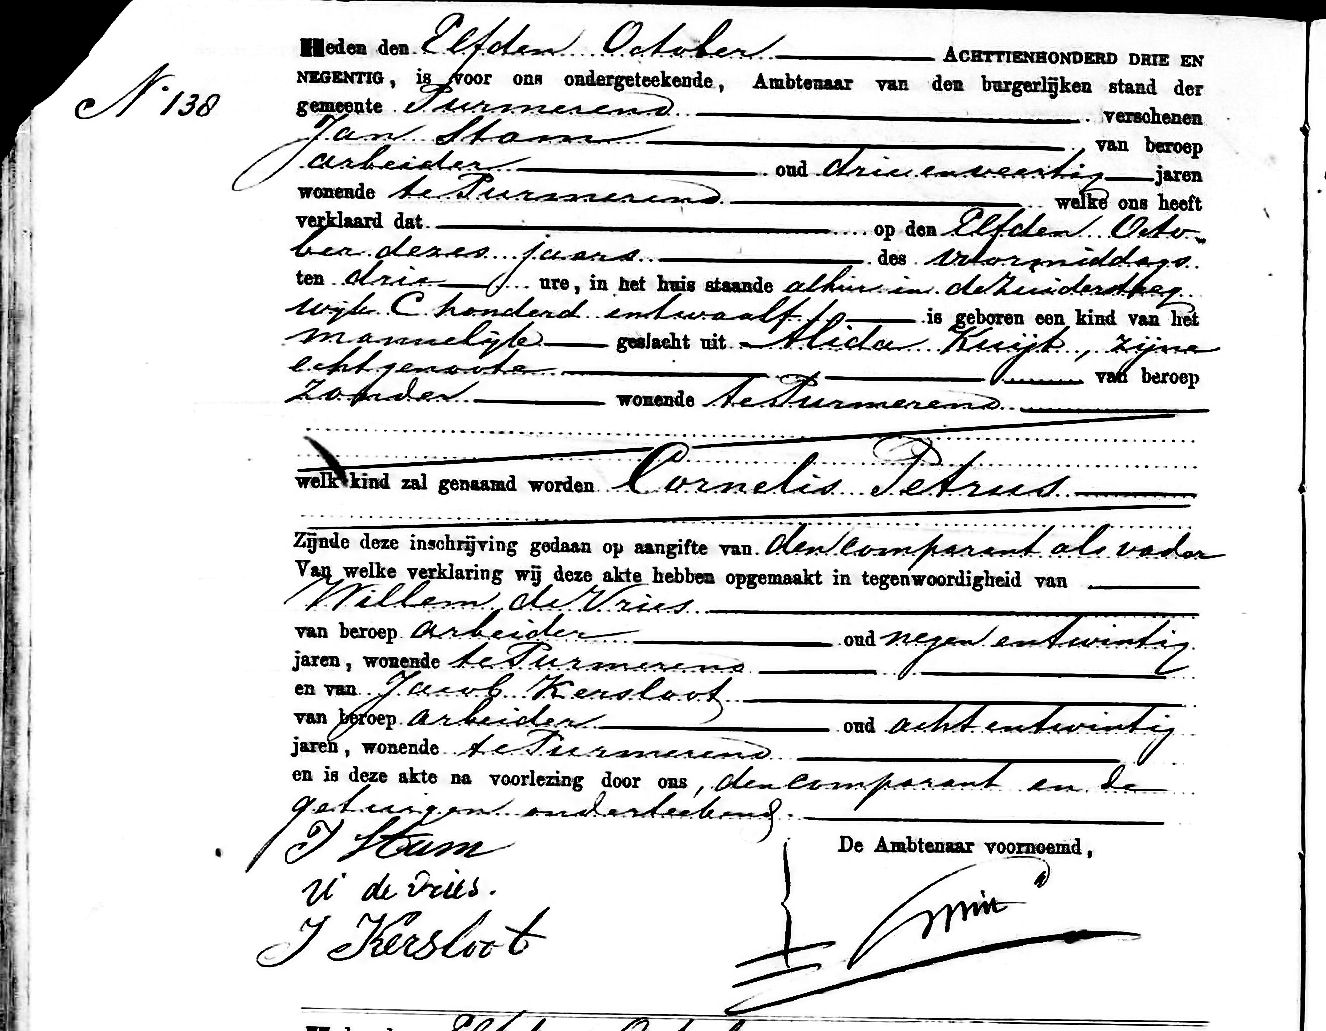 No 138
Heden den Elfden October ACHTTIENHONDERD DRIE EN
NEGENTIG, is voor ons ondergeteekende, Ambtenaar van den burgerlijken stand der
gemeente Purmerend verschenen
Jan Stam van beroep
arbeider oud drie en veertig jaren
wonende te Purmerend welke ons heeft
verklaard dat op den Elfden Octo-
ber dezes jaars des voormiddags
ten drie ure, in het huis staande alhier in de Zuidersteeg
wijk C honderd en twaalf is geboren een kind van het
mannelijke geslacht uit Alida Kuijt, zijne
echtgenoote van beroep
zonder wonende te Purmerend
welk kind zal genaamd worden Cornelis Petrus
Zijnde deze inschrijving gedaan op aangifte van den comparant als vader
Van welke verklaring wij deze akte hebben opgemaakt in tegenwoordigheid van
Willem de Vries
van beroep arbeider oud negen en twintig
jaren, wonende te Purmerend
en van Jacob Kersloot
van beroep arbeider oud acht en twintig
jaren, wonende te Purmerend
en is deze akte na voorlezing door ons, den comparant en de
getuigen onderteekend.
J Stam
De Ambtenaar voornoemd,
W de Vries.
J Kersloot
Elfden Octob